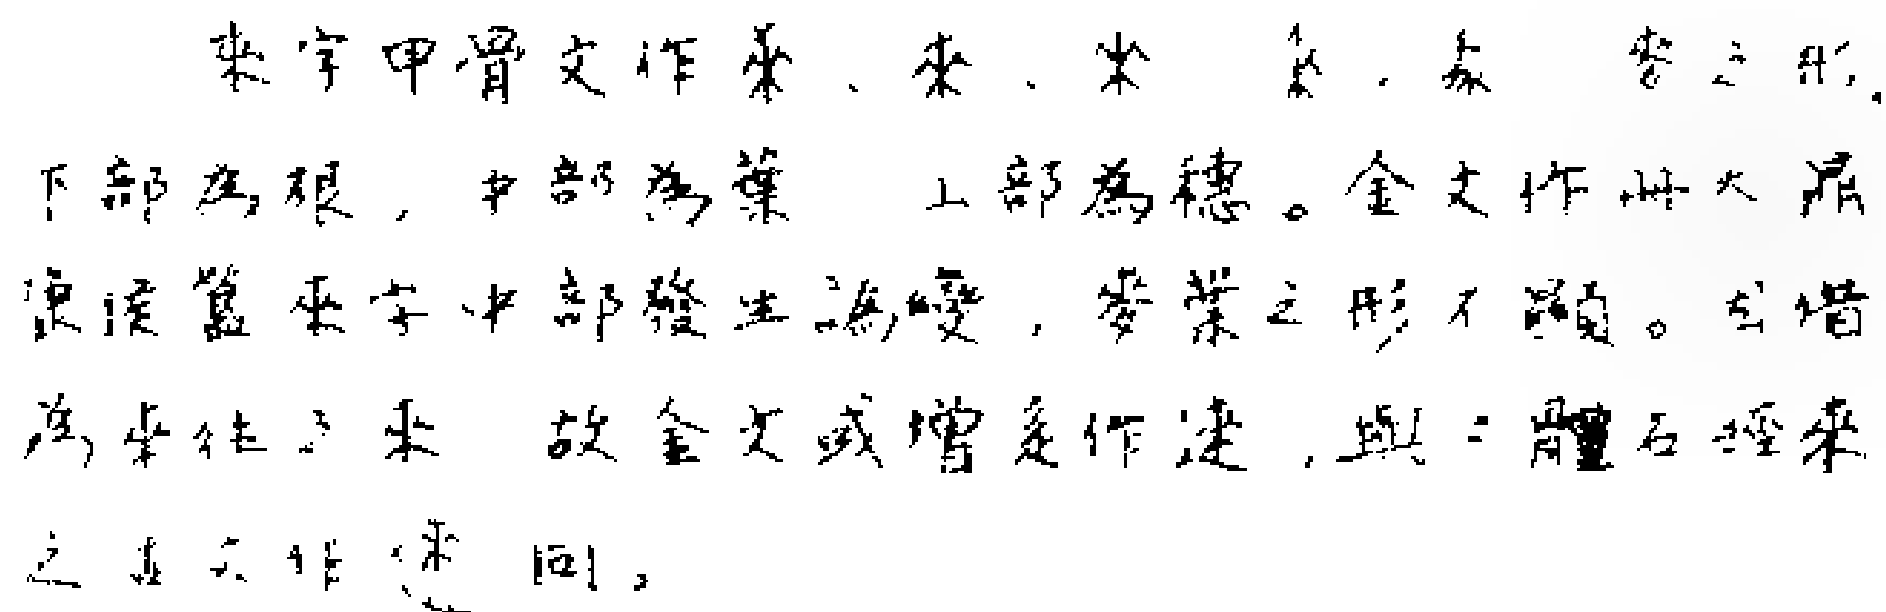 來字甲骨文作來、來、來 麥之形.
下部為根,中部為葉 上部為穗。金文作 大鼎
簋來字中部發生譌變,麥葉之形不顯。 借
為來往之來 故金文或增辵作逨,與三體石經來
之古文作逨同。